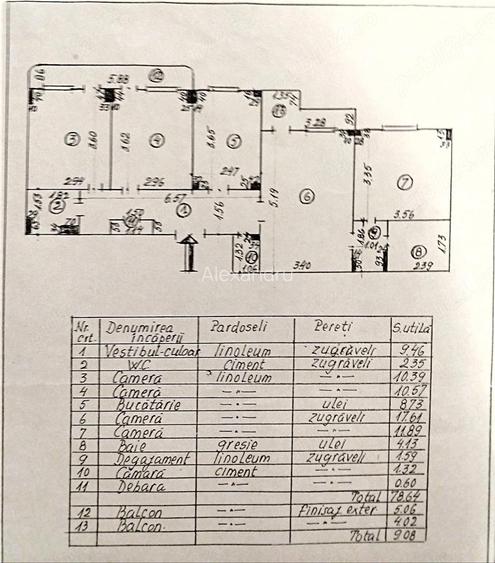 86
5.88
12
3
3.60
4
3.62
3.65
5
13
3.28
92
5.19
6
3.35
7
2.94
2.96
2.47
6.57
1.56
1.82
1.53
2
1
3.56
1.73
8
2.39
1.01
1.86
93
70
1.32
10
1.06
3.40
Alexandru
Nr. crt. Denumirea încăperii Pardoseli Pereți S.utilă
1 Vestibul-culoar linoleum zugrăveli 9.46
2 WC ciment zugrăveli 2.35
3 Camera linoleum —"— 10.39
4 Camera —"— —"— 10.57
5 Bucătărie —"— ulei 8.73
6 Camera —"— zugrăveli 17.61
7 Camera —"— —"— 11.89
8 Baie gresie ulei 4.13
9 Degajament linoleum zugrăveli 1.59
10 Cămară ciment —"— 1.32
11 Debara —"— —"— 0.60
Total 78.64
12 Balcon —"— Finisaj exter 5.06
13 Balcon —"— —"— 4.02
Total 9.08